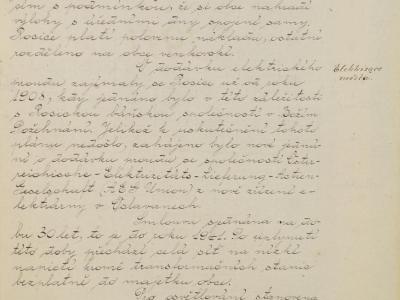 jim s podmínkou, že si obce nahradí
výlohy s úředními dny spojené samy.
Rosice platí polovinu nákladu, ostatní
rozděleno na obce venkovské.
O dodávku elektrického
proudu zajímaly se Rosice už od roku
1908, kdy jednáno bylo v této záležitosti
s Rosickou báňskou společností v Božím
Požehnání. Jelikož k uskutečnění tohoto
plánu nedošlo, zahájeno bylo nové jedná-
ní o dodávku proudu se společností Östur-
reichische-Elektuzitäts-Lieferung-Aktien-
Geselschaft (A.E.G. Union) z nově zřízené e-
lektrárny v Oslavanech.
Smlouva sjednána na do-
bu 30 let, to je do roku 1941. Po uplynutí
této doby přechází celá síť na nízké
napietí kromě transformačních stanic
bezplatně do majetku obcí.
Pro osvětlování stanovena
Elektrisace
města.